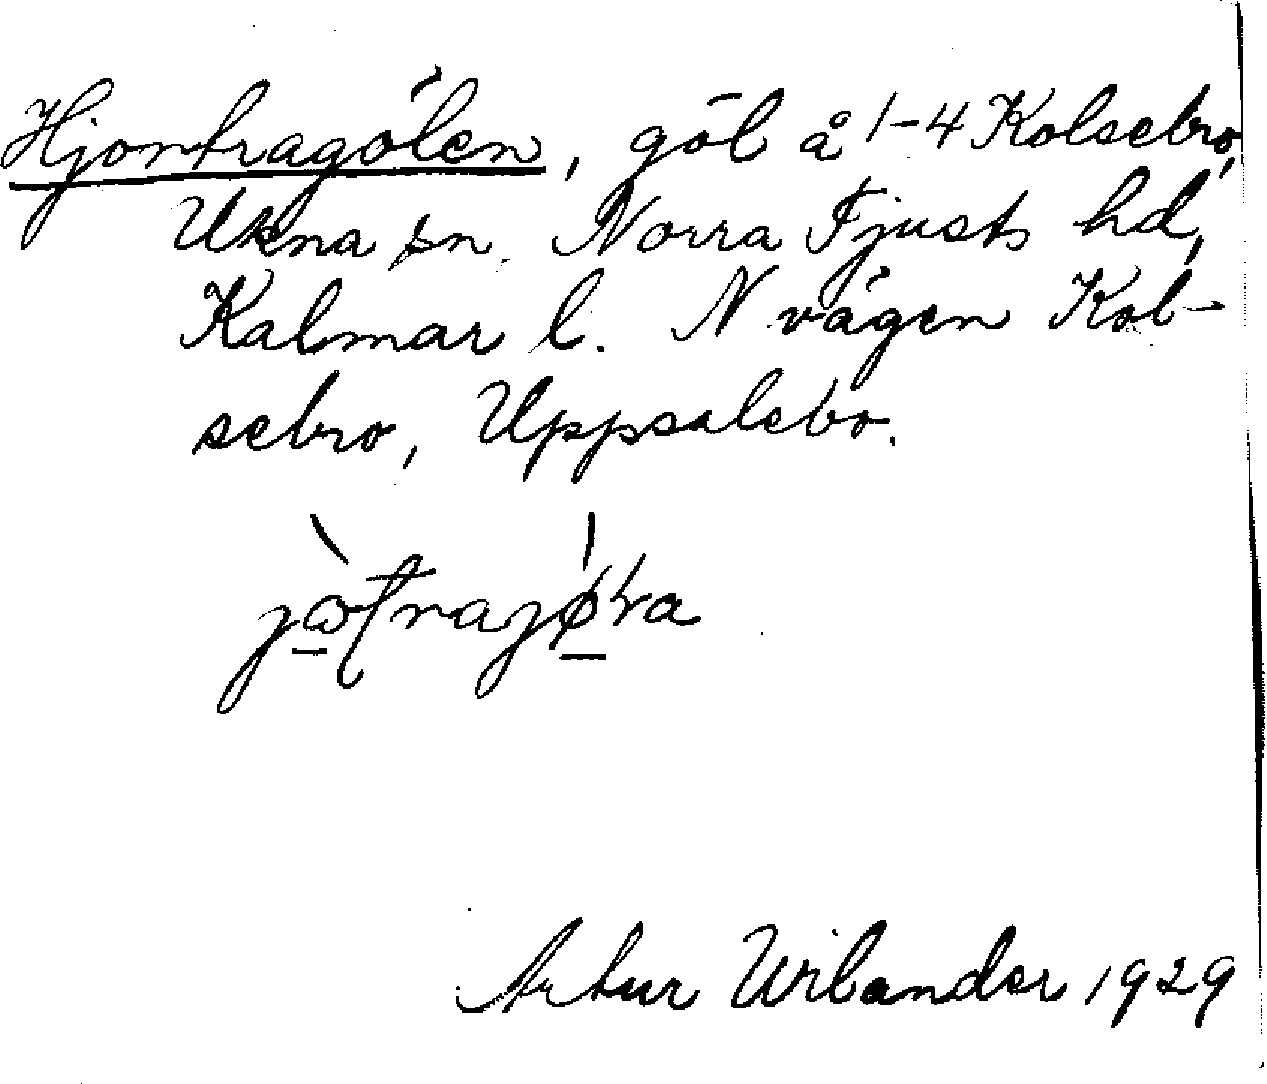 Hjortragölen, göl å 1-4 Kolsebro,
Ukna sn. Norra Tjusts hd,
Kalmar l. N vägen Kol-
sebro, Uppsalebo.
Artur Wilander 1929